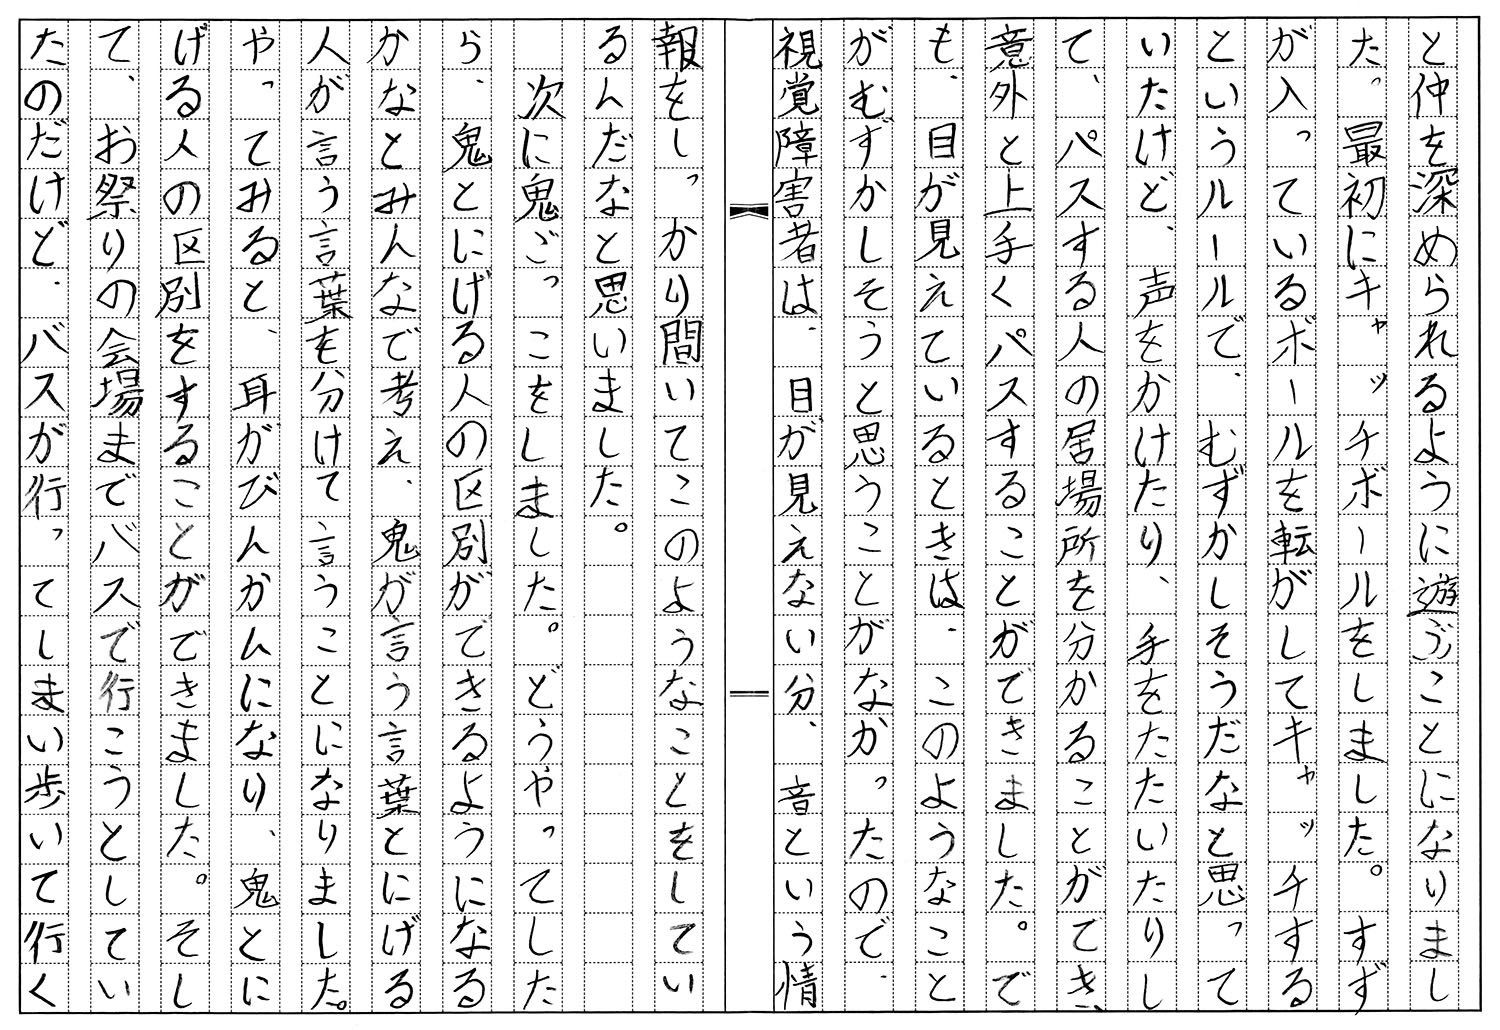 と仲を深められるように遊ぶことになりまし
た。最初にキャッチボールをしました。すず
が入っているボールを転がしてキャッチする
というルールで、むずかしそうだなと思って
いたけど、声をかけたり、手をたたいたりし
て、パスする人の居場所を分かることがてき、
意外と上手くパスすることができました。で
も、目が見えているときは、このようなこと
がむずかしそうと思うことがなかったので、
視覚障害者は、目が見えない分、音という情
報をしっかり間いてこのようなことをしてい
るんだなと思いました。
　次に鬼ごっこをしました。どうやってした
ら、鬼とにげる人の区別ができるようになる
かなとみんなで考え、鬼が言う言葉とにげる
人が言う言葉を分けて言うことになりました。
やってみると、耳がびんかんになり、鬼とに
げる人の区別をすることができました。そし
て、お祭りの会場までバスで行こうとしてい
たのだけど、バスが行ってしまい歩いて行く